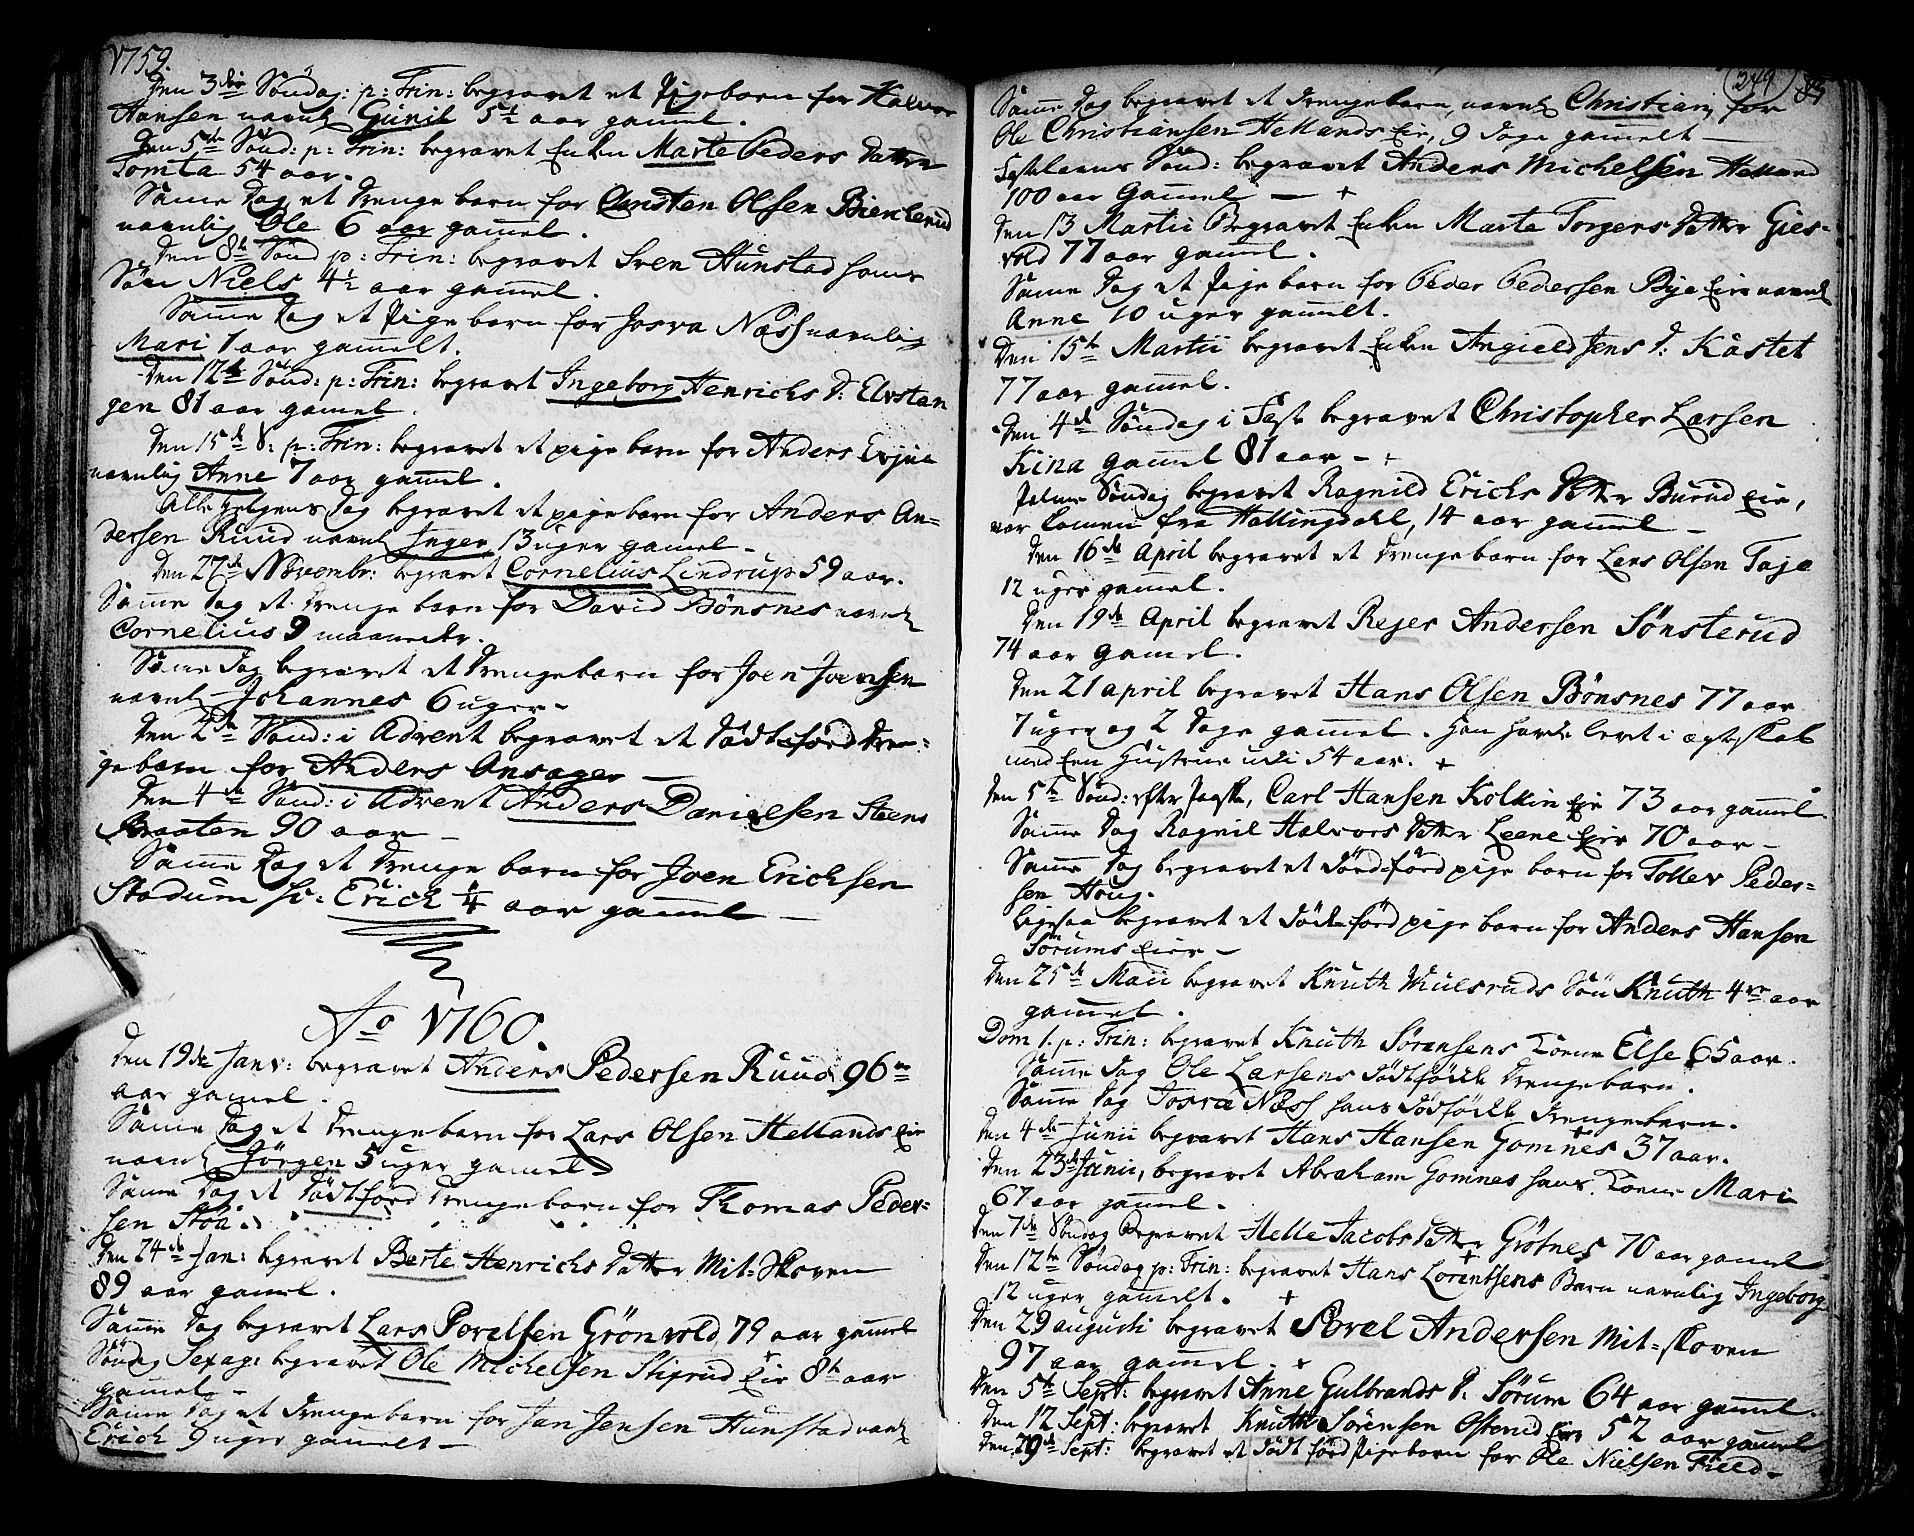 1759.
Den 3die Söndag: p: Trin: begravet et Pigebarn for Halvor
Hansen navnl Gunil 5½ aar gaml.
Den 5te Sönd: p: Trin: begravet Enken Marte Peders Datter
Tomta 54 aar.
Samme Dag et Drenge barn for Carsten Olsen Bierkerud
navnlig Ole 6 aar gammel.
Den 8de Sönd p: Trin: begravet Sven Hunstad hans
Sön Niels 4½ aar gammel.
Samme Dag et Pige barn for Josva Næss navnlig
Mari 1 aar gammelt.
Den 12te Sönd: p: Trin: begravet Ingeborg Henrichs D: Elvstan
gen 81 aar gamel.
Den 15de S: p: Trin: begravet et pige barn for Anders Evjua
navnlig Anne 7 aar gammel.
Alle Helgens Dag begravet et pigebarn for Anders An=
dersen Ruud navnl Inger 13 uger gamel.
Den 27de Novembr: begravet Cornelius Lindrup 59 aar.
Samme Dag et Drenge barn for David Bönsnes navnl
Cornelius 9 maaneder.
Samme Dag begravet et Drengebarn for Joen Joensen
navnl Johannes 6 uger
Den 2de Sönd: i Advent begravet et Dödtförd Dren=
ge barn for Anders Ansager
Den 4de Sönd: i Advent Anders Danielsen Steens
Braaten 90 aar
Samme Dag et Drenge barn for Joen Erichsen
Stadum hi: Erich ¼ aar gammel
Ao 1760.
Den 19de Janv: begravet Anders Pedersen Ruud 96
aar gamel.
Samme Dag et Drengebarn for Lars Olsen Hellands Eie
navnl Jörgen 5 uger gamel
Samme Dag et Dödtförd Drengebarn for Thomas Peder=
sen Stöa.
Den 24de Jan: begravet Berte Henrichs Datter Mit=Skoven
89 aar gamel.
Samme Dag begravet Lars Povelsen Grönvold, 79 aar gammel
Söndag Sexag: begravet Ole Michelsen Stiprud Eie 8te aar
gammel
Samme Dag et Drengebarn for Jan Jensen Hunstad navnl
Erich 9 uger gammelt
344 85
Samme Dag begravet et Drengebarn, navnl Christian, for
Ole Christiansen Hellands Eie, 9 Dage gammelt
Fastelavns Sönd: begravet Anders Michelsen Helland
100 aar Gammel +
Den 13 Martii Begravet Enken Marte Torgers Datter Gies=
vold 77 aar gammel.
Samme Dag et Pige barn for Peder Pedersen Bye Eie navnl
Anne 10 uger gammelt.
Den 15te Martii begravet Enken Angield Jens D: Kästet
77 aar gammel.
Den 4de Söndag i Faste begravet Christopher Larsen
Kina gammel 81 aar +
Palme Söndag begravet Ragnild Erichs Datter Burud Eie,
var komen fra Hallingdahl, 14 aar gammel
Den 16de April begravet et Drenge barn for Lars Olsen Faje
12 uger gammel.
Den 19de April begravet Rejer Andersen Sönsterud
74 aar gamel.
Den 21 april begravet Hans Olsen Bönsnes 77 aar
7 uger og 2 Dage gammel. Han havde levet i ægteskab
med Een Hustrue udi 54 aar. +
Den 5te Sönd: efter Paaske, Carl Hansen Kolkin Eie 73 aar gammel.
Samme Dag Ragnil Halvors Datter Leene Eie 70 aar
Samme Dag begravet et Dödtförd pige barn for Tollev Peder=
sen Houg.
Ligesaa begravet et Dödtförd pige barn for Anders Hansen
Sörums Eier
Den 25de Maii begravet Knuth Muelsruds Sön Knuth 4re aar
gammel.
Dom 1. p: Trin: begravet Knuth Sörensens Kone Else 65 aar.
Samme Dag Ole Larsens Dödtfödde Drengebarn.
Samme Dag Josva Næss hans Dödfödde Drengebarn.
Den 4de Junii begravet Hans Hansen Gomnes 37 aar.
Den 23de Junii, begravet Abraham Gomnes hans Kone Mari
67 aar gammel.
Den 7de Söndag Begravet Helle Jacobs Datter Grötnes 70 aar gamel
Den 12te Söndag p: Trin: begravet Hans Lorentsens Barn navnlig Ingeborg
12 uger gammelt. +
Den 29 augusti begravet Povel Andersen Mit=skoven
97 aar gammel. +
Den 5te Sept: begravet Anne Gulbrands D: Sörum 64 aar gammel.
Den 12 Sept: begravet Knuth Sörensen Osterud Eie 52 aar gammel
Den 29de Sept: begravet et Dödt förd Pigebarn for Ole Nielsen Field